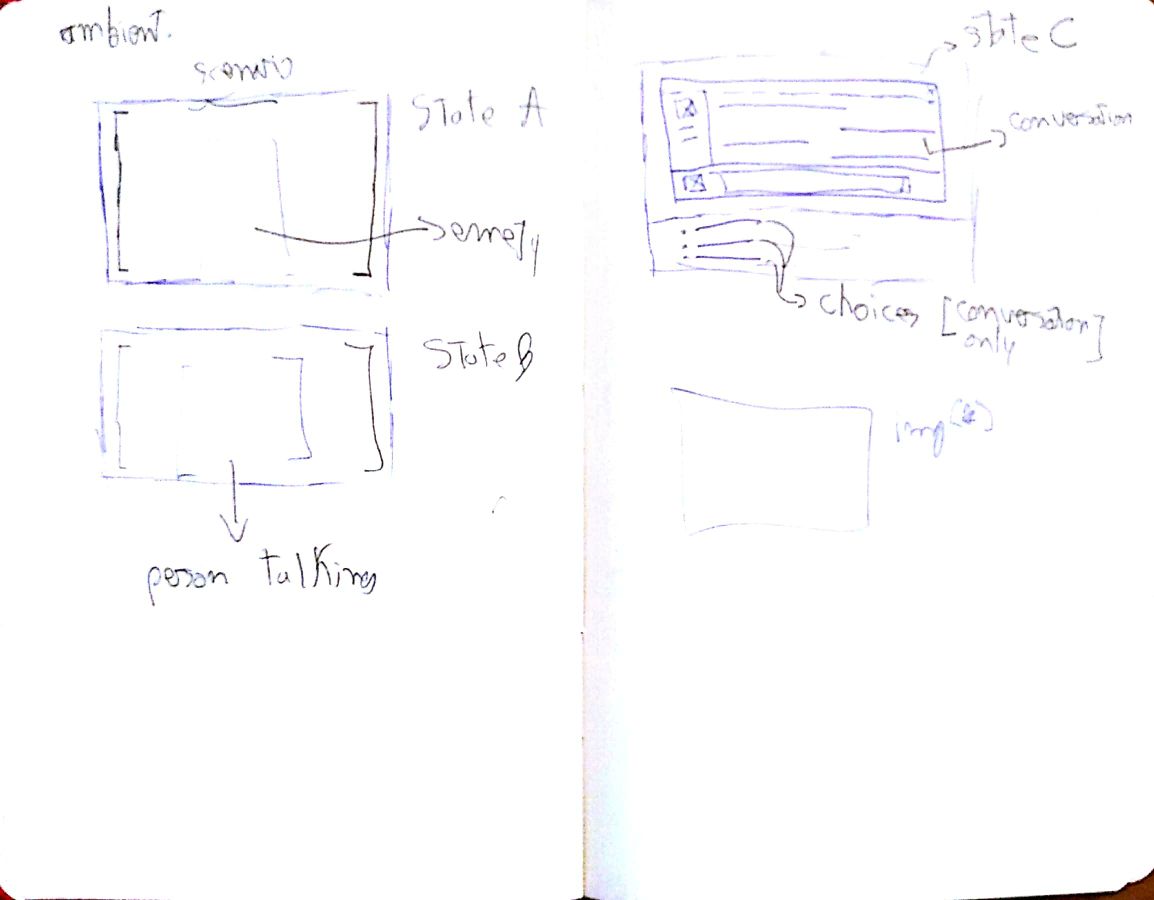 ambient.
scenario
State A
State B
person talking
state C
conversation
choices [conversation
only]